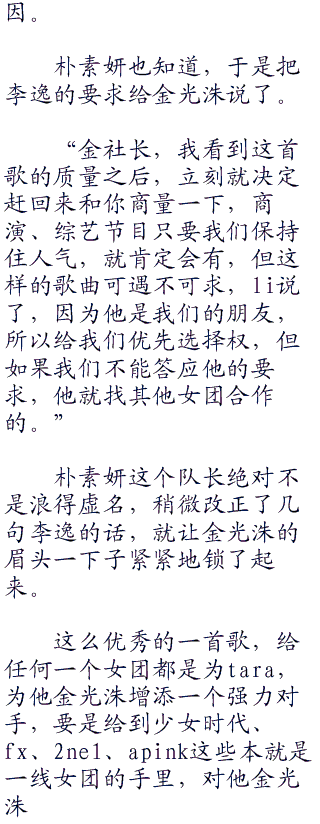 因。
朴素妍也知道，于是把
李逸的要求给金光洙说了。
“金社长，我看到这首
歌的质量之后，立刻就决定
赶回来和你商量一下，商
演、综艺节目只要我们保持
住人气，就肯定会有，但这
样的歌曲可遇不可求，li说
了，因为他是我们的朋友，
所以给我们优先选择权，但
如果我们不能答应他的要
求，他就找其他女团合作
的。”
朴素妍这个队长绝对不
是浪得虚名，稍微改正了几
句李逸的话，就让金光洙的
眉头一下子紧紧地锁了起
来。
这么优秀的一首歌，给
任何一个女团都是为tara，
为他金光洙增添一个强力对
手，要是给到少女时代、
fx、2ne1、apink这些本就是
一线女团的手里，对他金光
洙